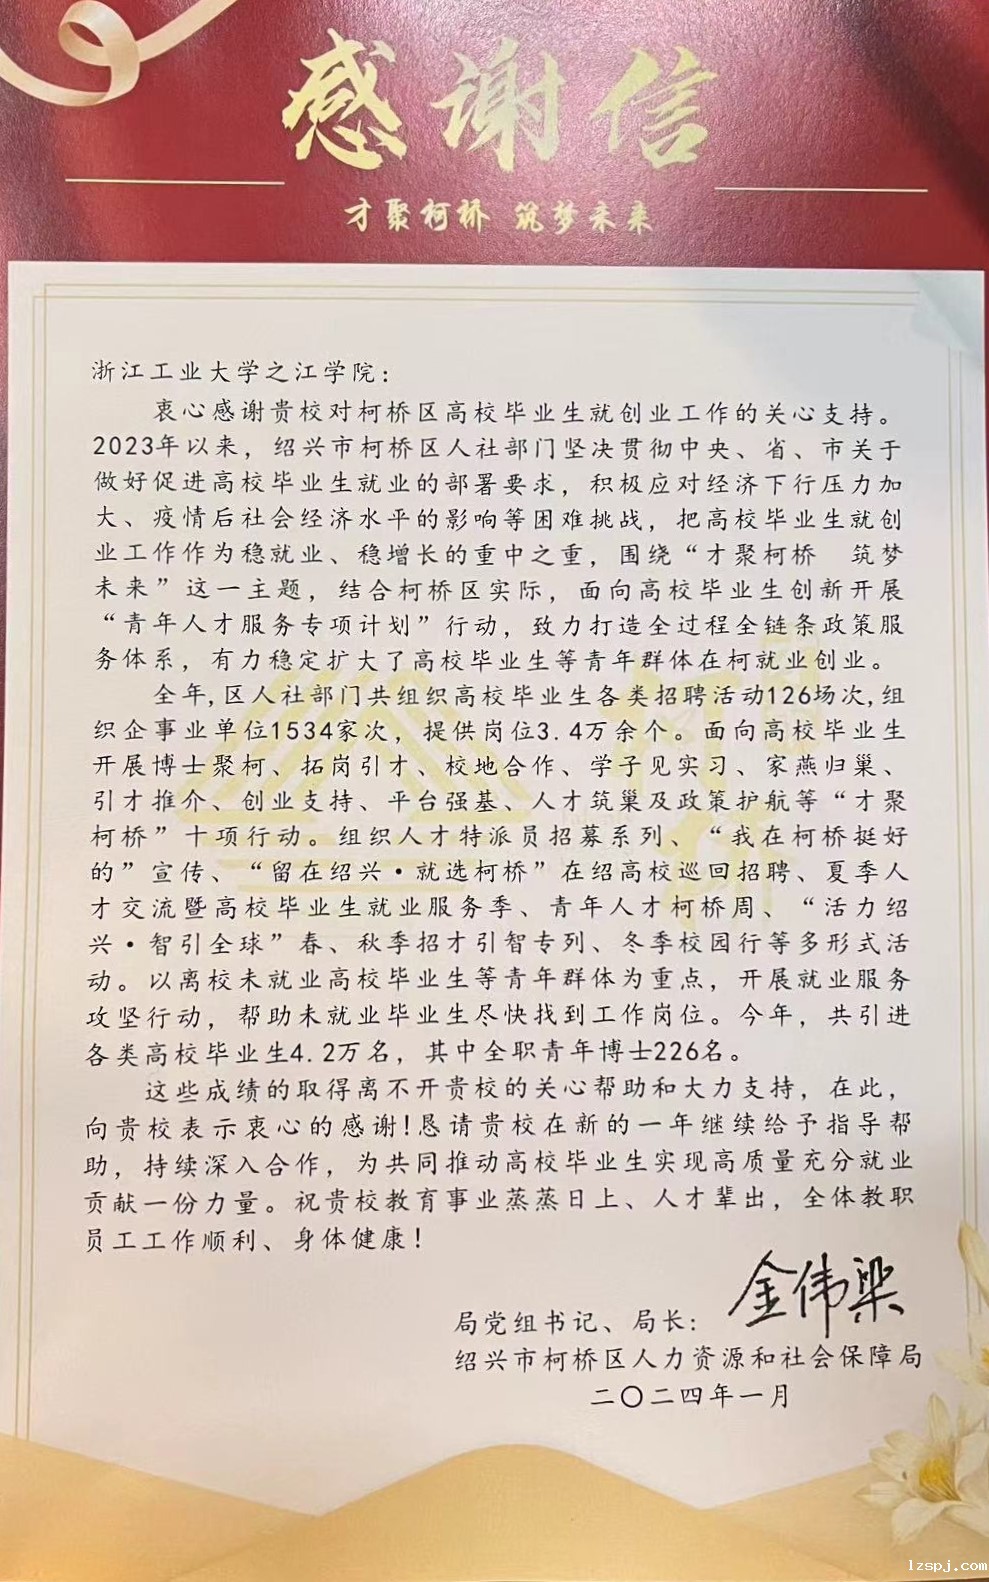 感谢信
才聚柯桥 筑梦未来
浙江工业大学之江学院：
衷心感谢贵校对柯桥区高校毕业生就创业工作的关心支持。
2023年以来，绍兴市柯桥区人社部门坚决贯彻中央、省、市关于
做好促进高校毕业生就业的部署要求，积极应对经济下行压力加
大、疫情后社会经济水平的影响等困难挑战，把高校毕业生就创
业工作作为稳就业、稳增长的重中之重，围绕“才聚柯桥 筑梦
未来”这一主题，结合柯桥区实际，面向高校毕业生创新开展
“青年人才服务专项计划”行动，致力打造全过程全链条政策服
务体系，有力稳定扩大了高校毕业生等青年群体在柯就业创业。
全年,区人社部门共组织高校毕业生各类招聘活动126场次,组
织企事业单位1534家次，提供岗位3.4万余个。面向高校毕业生
开展博士聚柯、拓岗引才、校地合作、学子见实习、家燕归巢、
引才推介、创业支持、平台强基、人才筑巢及政策护航等“才聚
柯桥”十项行动。组织人才特派员招募系列、“我在柯桥挺好
的”宣传、“留在绍兴·就选柯桥”在绍高校巡回招聘、夏季人
才交流暨高校毕业生就业服务季、青年人才柯桥周、“活力绍
兴·智引全球”春、秋季招才引智专列、冬季校园行等多形式活
动。以离校未就业高校毕业生等青年群体为重点，开展就业服务
攻坚行动，帮助未就业毕业生尽快找到工作岗位。今年，共引进
各类高校毕业生4.2万名，其中全职青年博士226名。
这些成绩的取得离不开贵校的关心帮助和大力支持，在此，
向贵校表示衷心的感谢!恳请贵校在新的一年继续给予指导帮
助，持续深入合作，为共同推动高校毕业生实现高质量充分就业
贡献一份力量。祝贵校教育事业蒸蒸日上、人才辈出，全体教职
员工工作顺利、身体健康！
局党组书记、局长：金伟梁
绍兴市柯桥区人力资源和社会保障局
二〇二四年一月
lzspj.com